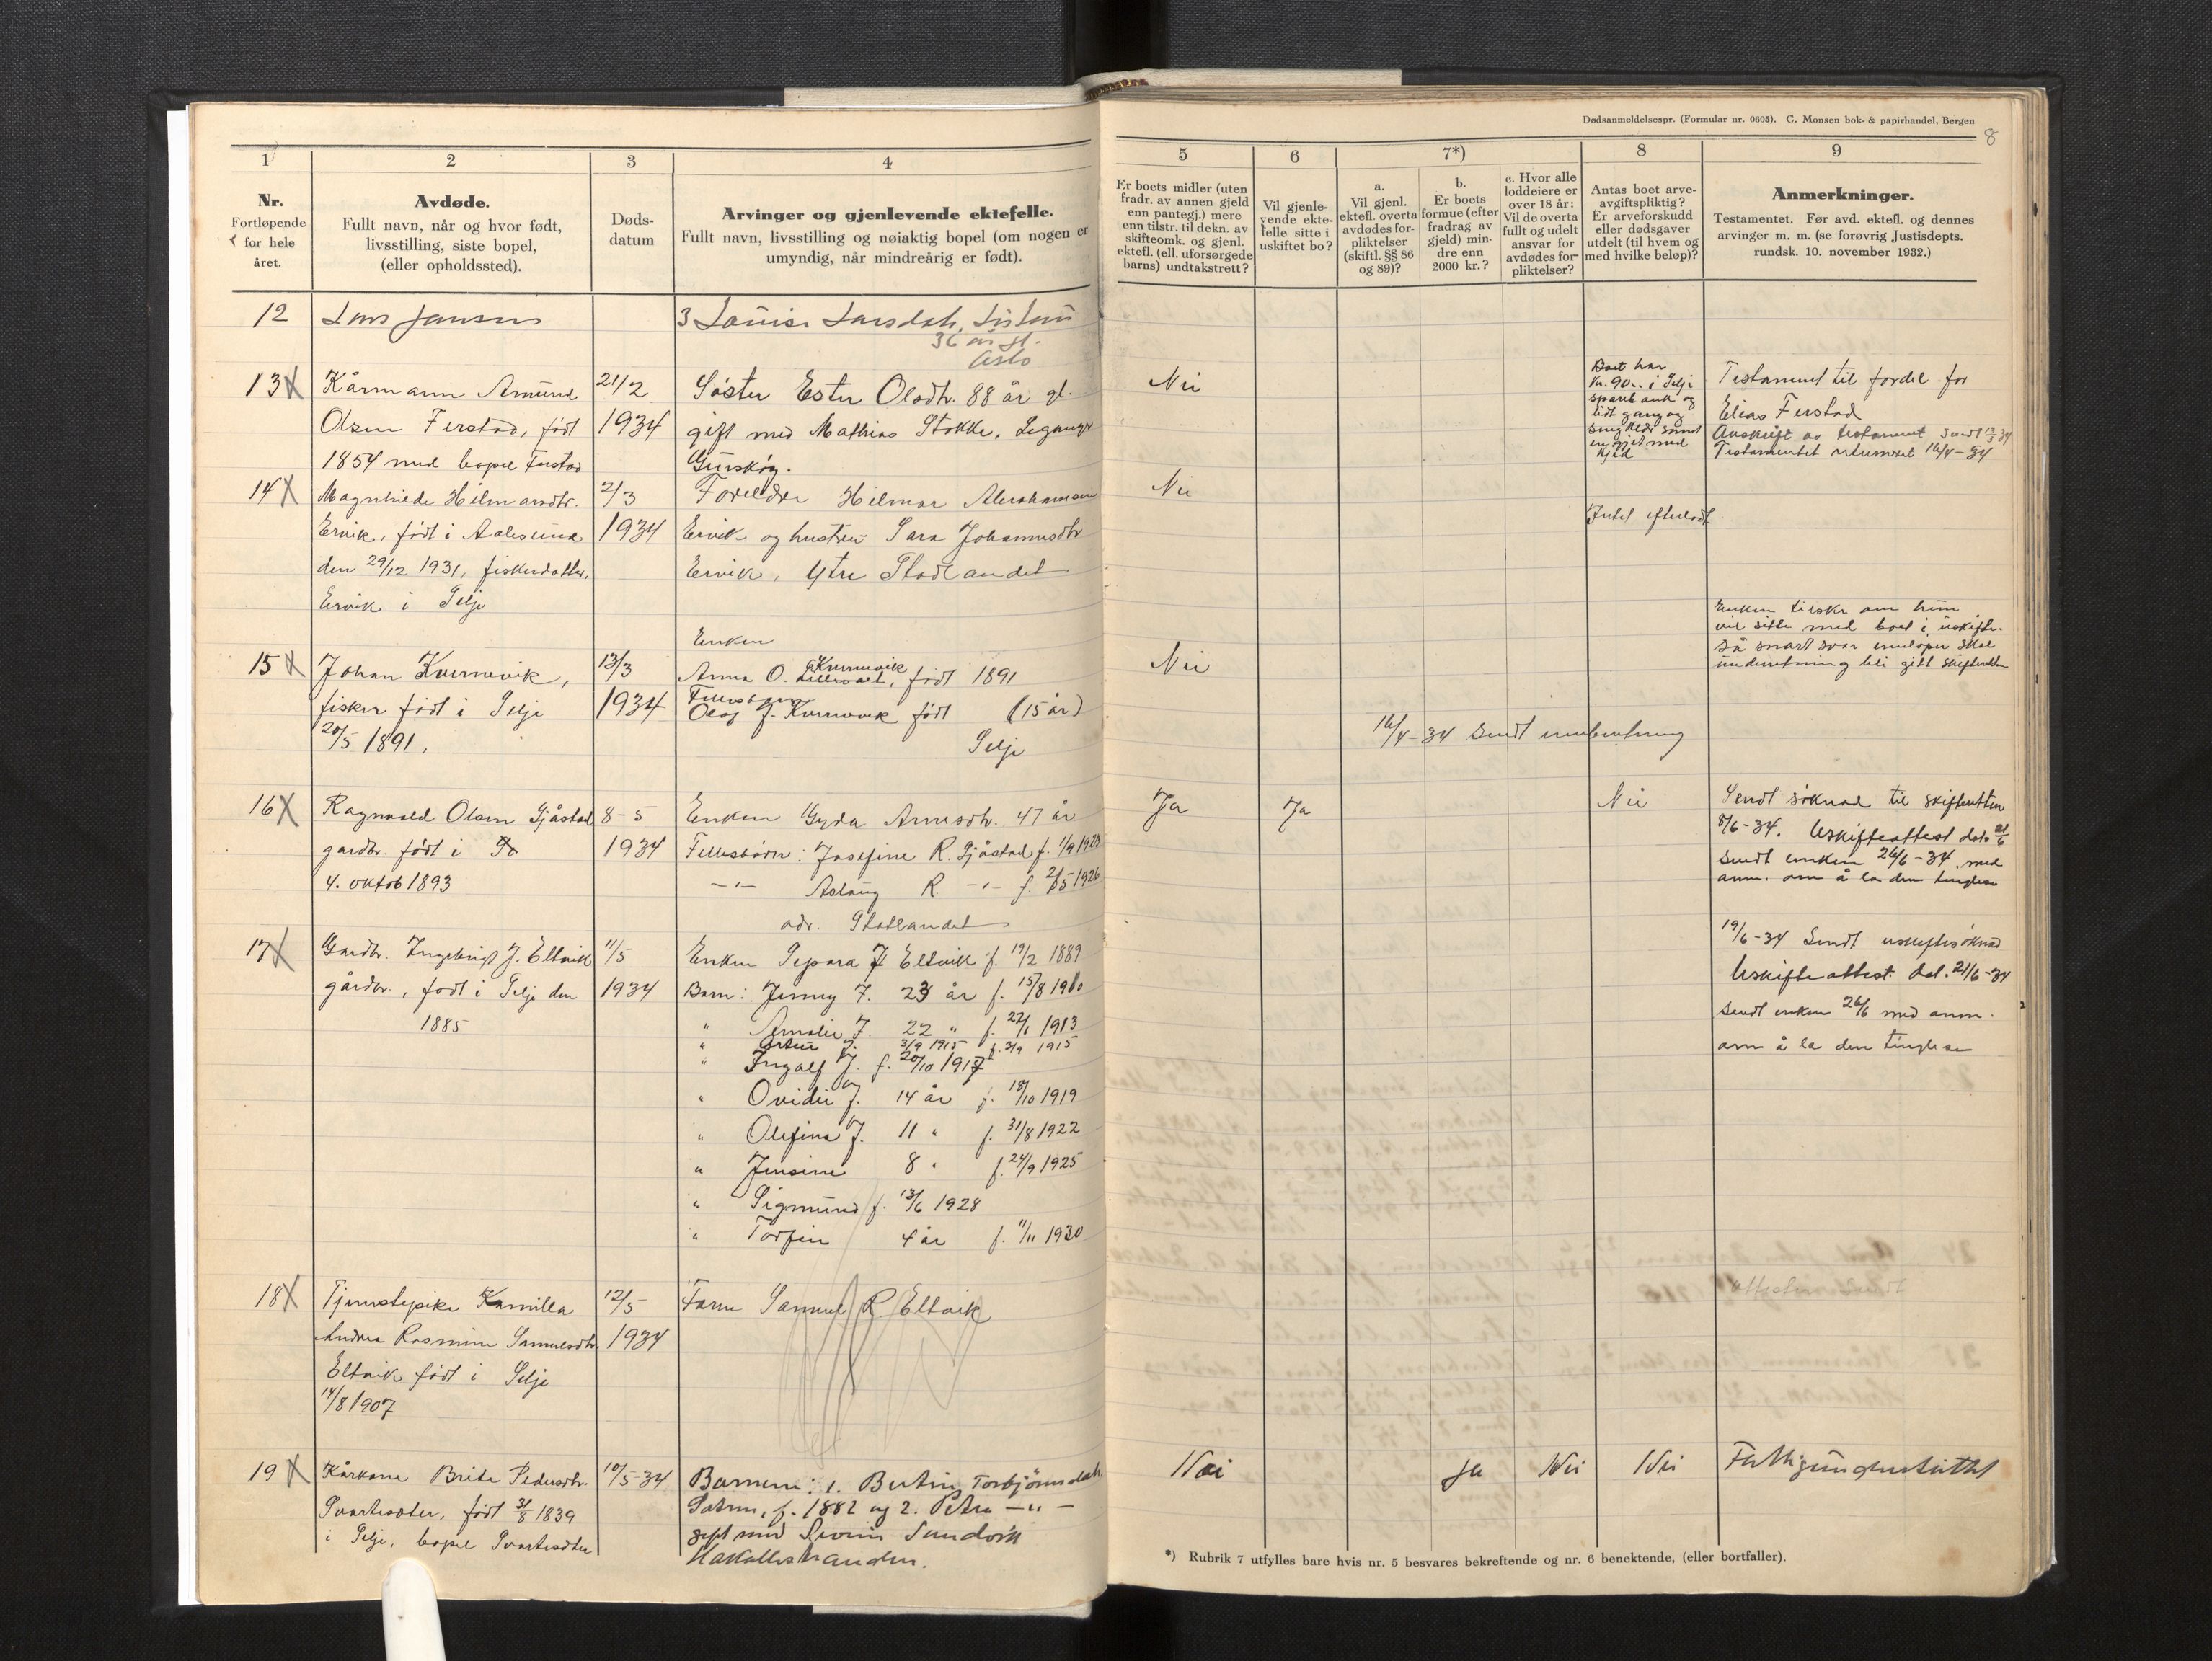 Dødsanmeldelsespr. (Formular nr. 0605). C. Monsen bok- & papirhandel, Bergen
8
1
2
3
4
5
6
7*)
8
9
Nr.
Fortløpende
for hele
året.
Avdøde.
Fullt navn, når og hvor født,
livsstilling, siste bopel,
(eller opholdssted).
Døds-
datum
Arvinger og gjenlevende ektefelle.
Fullt navn, livsstilling og nøiaktig bopel (om nogen er
umyndig, når mindreårig er født).
Er boets midler (uten
fradr. av annen gjeld
enn pantegj.) mere
enn tilstr. til dekn. av
skifteomk. og gjenl.
ektefl. (ell. uforsørgede
barns) undtakstrett?
Vil gjenle-
vende ekte-
felle sitte i
uskiftet bo?
a.
Vil gjenl.
ektefl. overta
avdødes for-
pliktelser
(skiftl. §§ 86
og 89)?
b.
Er boets
formue (efter
fradrag av
gjeld) min-
dre enn
2000 kr.?
c. Hvor alle
loddeiere er
over 18 år:
Vil de overta
fullt og udelt
ansvar for
avdødes for-
pliktelser?
Antas boet arve-
avgiftspliktig?
Er arveforskudd
eller dødsgaver
utdelt (til hvem og
med hvilke beløp)?
Anmerkninger.
Testamentet. Før avd. ektefl. og dennes
arvinger m. m. (se forøvrig Justisdepts.
rundsk. 10. november 1932.)
12 Lars Jansen
3 Louise Larsdatr.
36 år gl.
Oslo
13 X Kårmann Amund
Olsen Ferstad, født
1854 med bopel Ferstad
21/2
1934
Søster Ester Olsdtr. 88 år gl.
gift med Mathias Stokke,
Gurskøy.
Nei
Boet har
kr. 90.- i Selje
sparebank og
lidt gang og
sengklær samt
Testament til fordel for
Elias Ferstad
Avskrift av testament sendt
Testamentet returnert 16/4-34
14 X Magnhilde Hilmarsdtr.
Ervik, født i Aalesund
den 29/12 1931, fiskerdatter,
Ervik i Selje
2/3
1934
Foreldre Hilmar Abrahamsen
Ervik og hustru Sara Johannesdtr
Ervik, Ytre Stadlandet
Nei
Intet efterladt
15 X Johan Kvernevik,
fisker født i Selje
20/5 1891.
13/3
1934
Enken
Anna O. Kvernevik, født 1891
Fellesbarn
Olaf J. Kvernevik født (15 år)
Selje
Nei
16/4-34 Sendt innberetning
Enken tilskr om hun
vil sitte med boet i uskifte.
Så snart svar innløper skal
underretning bli gitt skifteretten
16 X Ragnvald Olsen Sjåstad
gardbr. født i
4. oktob 1893
8-5
1934
Enken Gyda Arnesdtr. 47 år
Fellesbørn: Josefine R. Sjåstad f. 1/9 1923
-"- Aslaug R. -"- f. 2/5 1926
adr. Statlandet
Ja
Ja
Nei
Sendt søknad til skifteretten
8/6-34. Uskifteattest dat. 21/6
sendt enken 26/6-34 med
anm. om å la den tinglese
17 X Gardbr. Ingebrigt J. Eltvik
gårdbr., født i Selje den
1885
11/5
1934
Enken Sepora J Eltvik f. 19/2 1889
Barn: Jenny J. 23 år f. 15/8 1910
" Amalie J. 22 " f. 22/1 1913
" J. 3/9 1915 f. 3/9 1915
" Ingolf J. f. 20/10 1917
" Ovidie J. 14 år f. 18/10 1919
" Olefina J. 11 " f. 31/8 1922
" Jensine 8 " f. 24/9 1925
" Sigmund f. 13/6 1928
" Torfin 4 år f. 11/11 1930
19/6-34 Sendt uskiftesøknad
Uskifteattest dat. 21/6-34
sendt enken 26/6 med anm.
om å la den tinglese
18 X Tjenestepike Kamilla
Andrea Rasmine Samuelsdtr.
Eltvik født i Selje
14/8 1907
12/5
1934
Faren Samuel R Eltvik
19 X Kårkone Brite Pedersdtr.
Svartesæter, født 31/8 1839
i Selje, bopel Svartesæter
10/5-34
Barnene: 1. Bertine Torbjørnsdatr.
f. 1882 og 2. Petra -"-
gift med Severin Sundsvik
Hakallestranden.
Nei
ja
Nei
Nei
Fattigunderstøttet
*) Rubrik 7 utfylles bare hvis nr. 5 besvares bekreftende og nr. 6 benektende, (eller bortfaller).